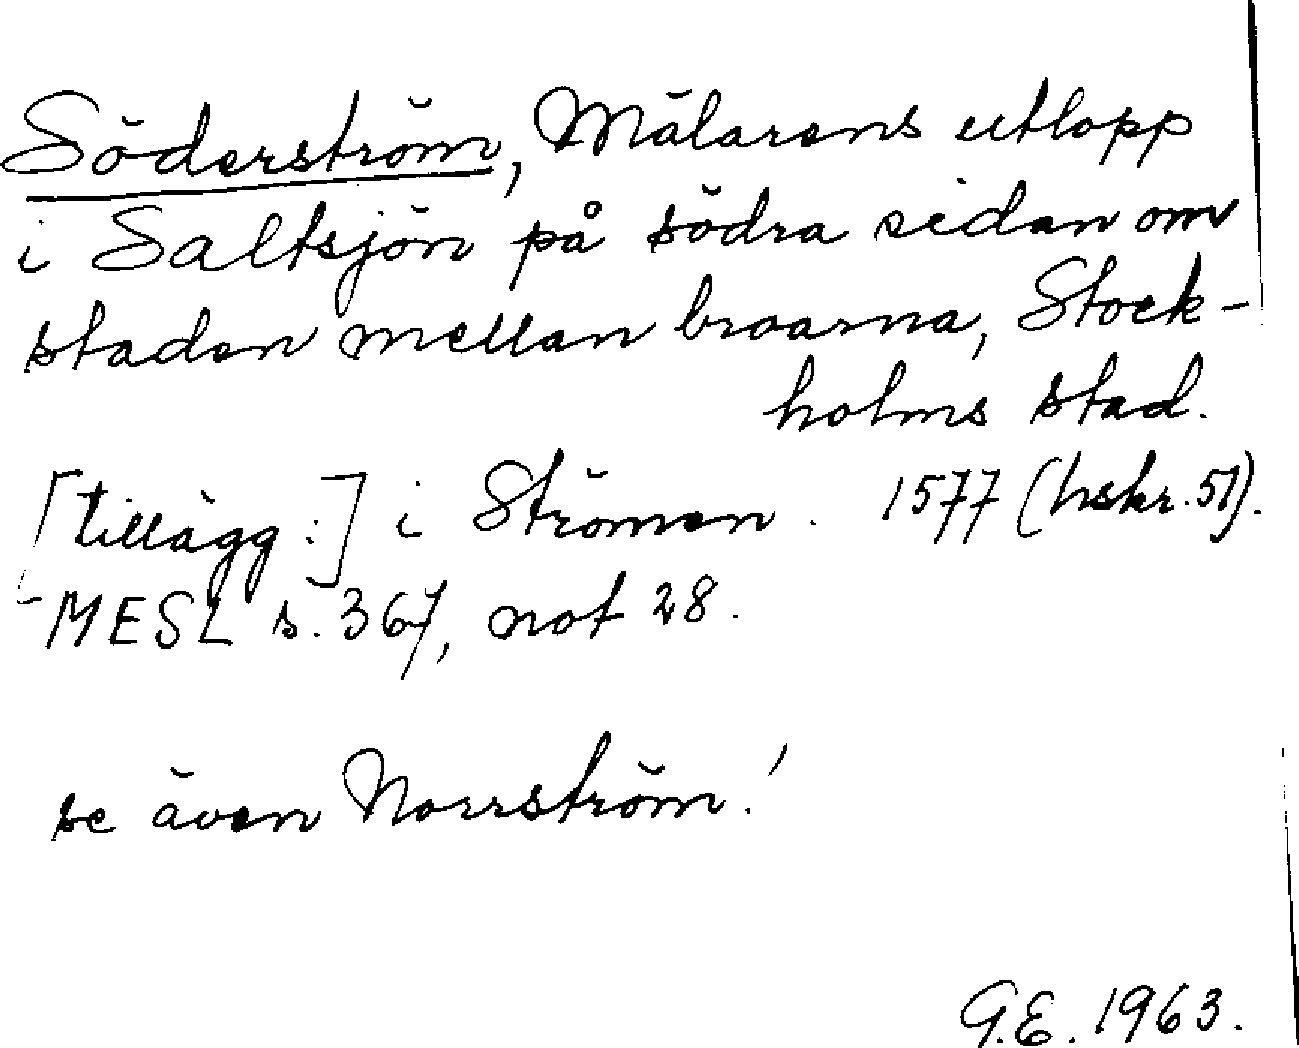 Söderström, Mälarens utlopp
i Saltsjön på södra sidan om
staden mellan broarna, Stock-
holms stad.
[tillägg:] i Strömen. 1577 (hskr. 51).
MESL s. 367, not 28.
se även Norrström!
G.E. 1963.